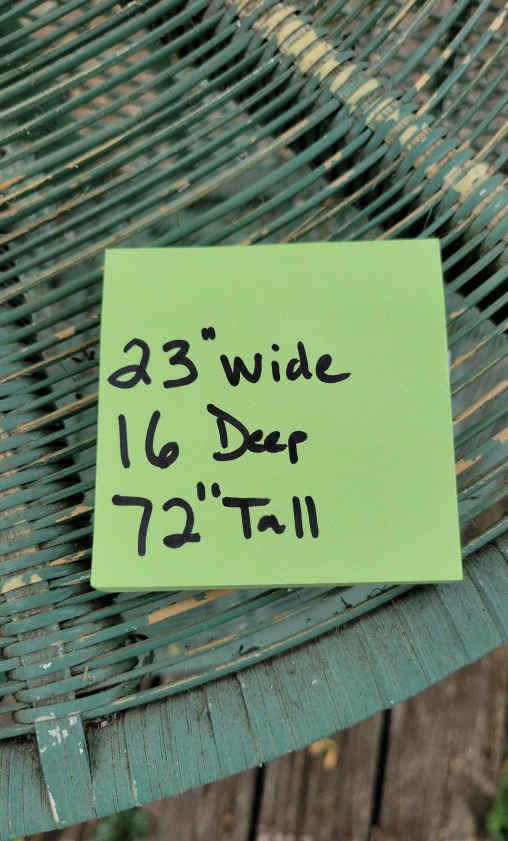 23" wide
16 Deep
72" Tall